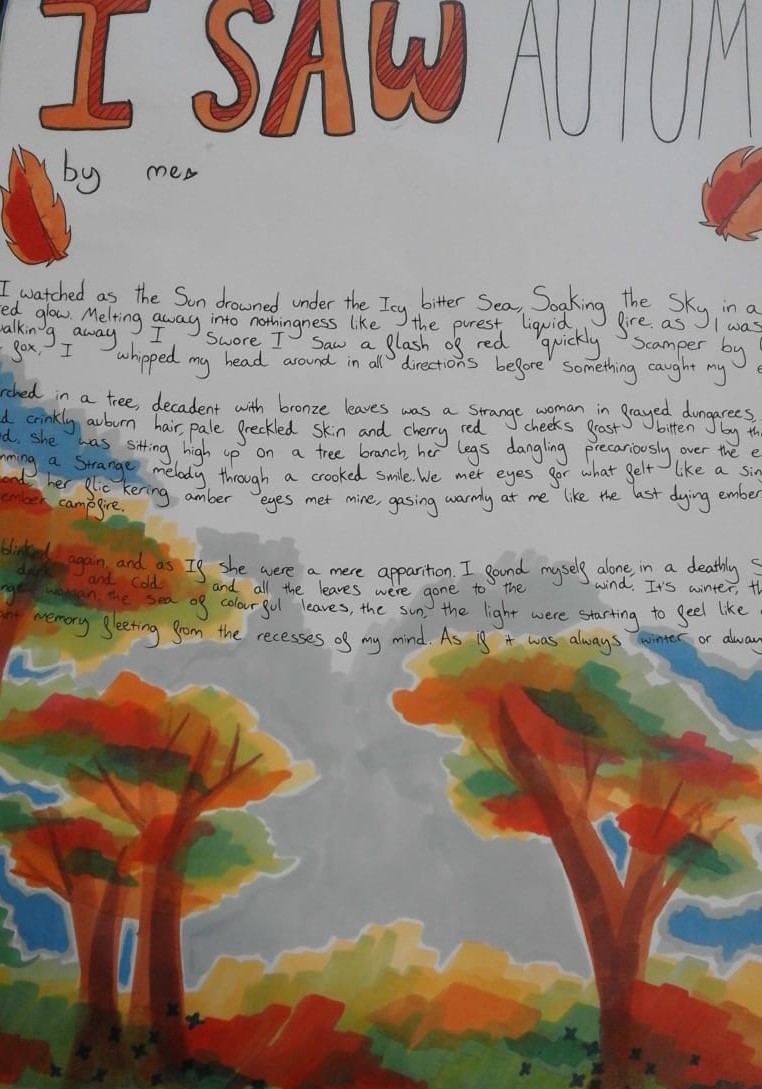 I SAW AUTUM
by me
I watched as the Sun drowned under the Icy bitter Sea, Soaking the Sky in a
red glow. Melting away into nothingness like the purest liquid fire. as I was
walking away I Swore I Saw a flash of red quickly Scamper by
fox, I whipped my head around in all directions before Something caught my
rched in a tree, decadent with bronze leaves was a strange woman in frayed dungarees,
d crinkly auburn hair, pale freckled Skin and cherry red cheeks frost bitten by th
d. She was sitting high up on a tree branch, her legs dangling precariously over the e
mming a Strange melody through a crooked smile. We met eyes for what felt like a sin
ond, her flickering amber eyes met mine, gasing warmly at me like the last dying ember
ember campfire.
blinked again, and as If She were a mere apparition. I found myself alone, in a deathly S
dark and cold and all the leaves were gone to the wind. It's winter, th
nge woman, the sea of colourful leaves, the sun, the light were starting to feel like
ant memory fleeting from the recesses of my mind. As if it was always winter or alway